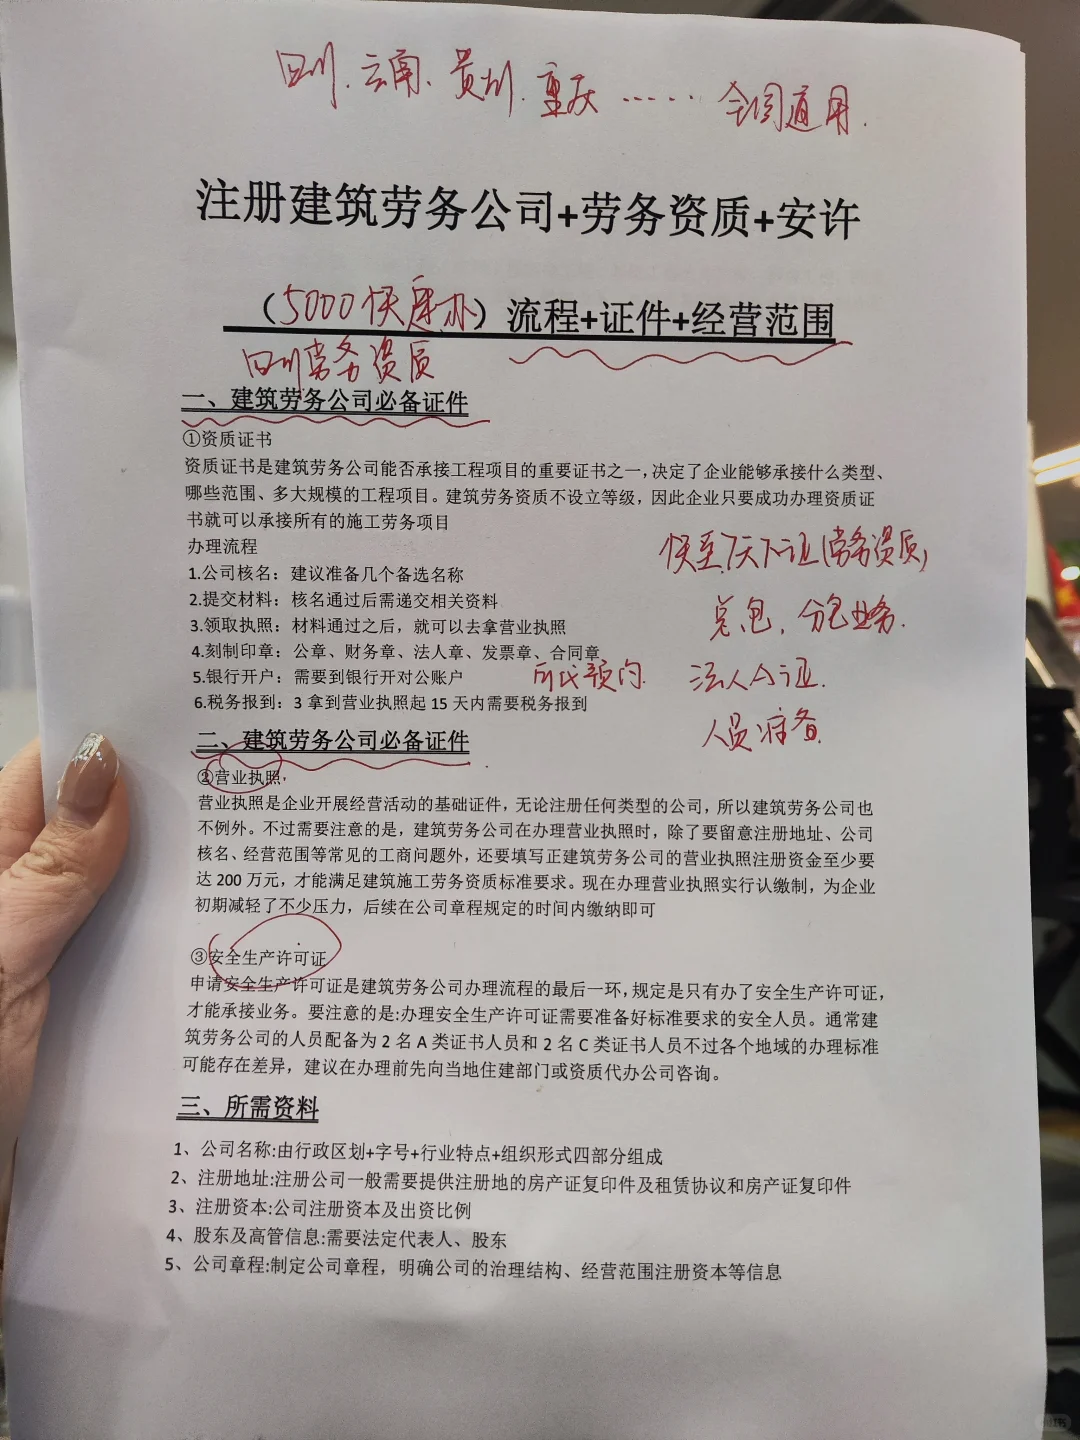 四川、云南、贵州、重庆……全国通用.
注册建筑劳务公司+劳务资质+安许
（5000快速办）流程+证件+经营范围
四川劳务资质
一、建筑劳务公司必备证件
①资质证书
资质证书是建筑劳务公司能否承接工程项目的重要证书之一，决定了企业能够承接什么类型、
哪些范围、多大规模的工程项目。建筑劳务资质不设立等级，因此企业只要成功办理资质证
书就可以承接所有的施工劳务项目
办理流程
快至7天下证(劳务资质)
1.公司核名：建议准备几个备选名称
2.提交材料：核名通过后需递交相关资料
总包，分包业务.
3.领取执照：材料通过之后，就可以去拿营业执照
4.刻制印章：公章、财务章、法人章、发票章、合同章
5.银行开户：需要到银行开对公账户
预约.
法人A证.
6.税务报到：3 拿到营业执照起 15 天内需要税务报到
人员准备
二、建筑劳务公司必备证件
②营业执照，
营业执照是企业开展经营活动的基础证件，无论注册任何类型的公司，所以建筑劳务公司也
不例外。不过需要注意的是，建筑劳务公司在办理营业执照时，除了要留意注册地址、公司
核名、经营范围等常见的工商问题外，还要填写正建筑劳务公司的营业执照注册资金至少要
达 200 万元，才能满足建筑施工劳务资质标准要求。现在办理营业执照实行认缴制，为企业
初期减轻了不少压力，后续在公司章程规定的时间内缴纳即可
③安全生产许可证
申请安全生产许可证是建筑劳务公司办理流程的最后一环，规定是只有办了安全生产许可证，
才能承接业务。要注意的是:办理安全生产许可证需要准备好标准要求的安全人员。通常建
筑劳务公司的人员配备为 2 名 A 类证书人员和 2 名 C 类证书人员不过各个地域的办理标准
可能存在差异，建议在办理前先向当地住建部门或资质代办公司咨询。
三、所需资料
1、公司名称:由行政区划+字号+行业特点+组织形式四部分组成
2、注册地址:注册公司一般需要提供注册地的房产证复印件及租赁协议和房产证复印件
3、注册资本:公司注册资本及出资比例
4、股东及高管信息:需要法定代表人、股东
5、公司章程:制定公司章程，明确公司的治理结构、经营范围注册资本等信息